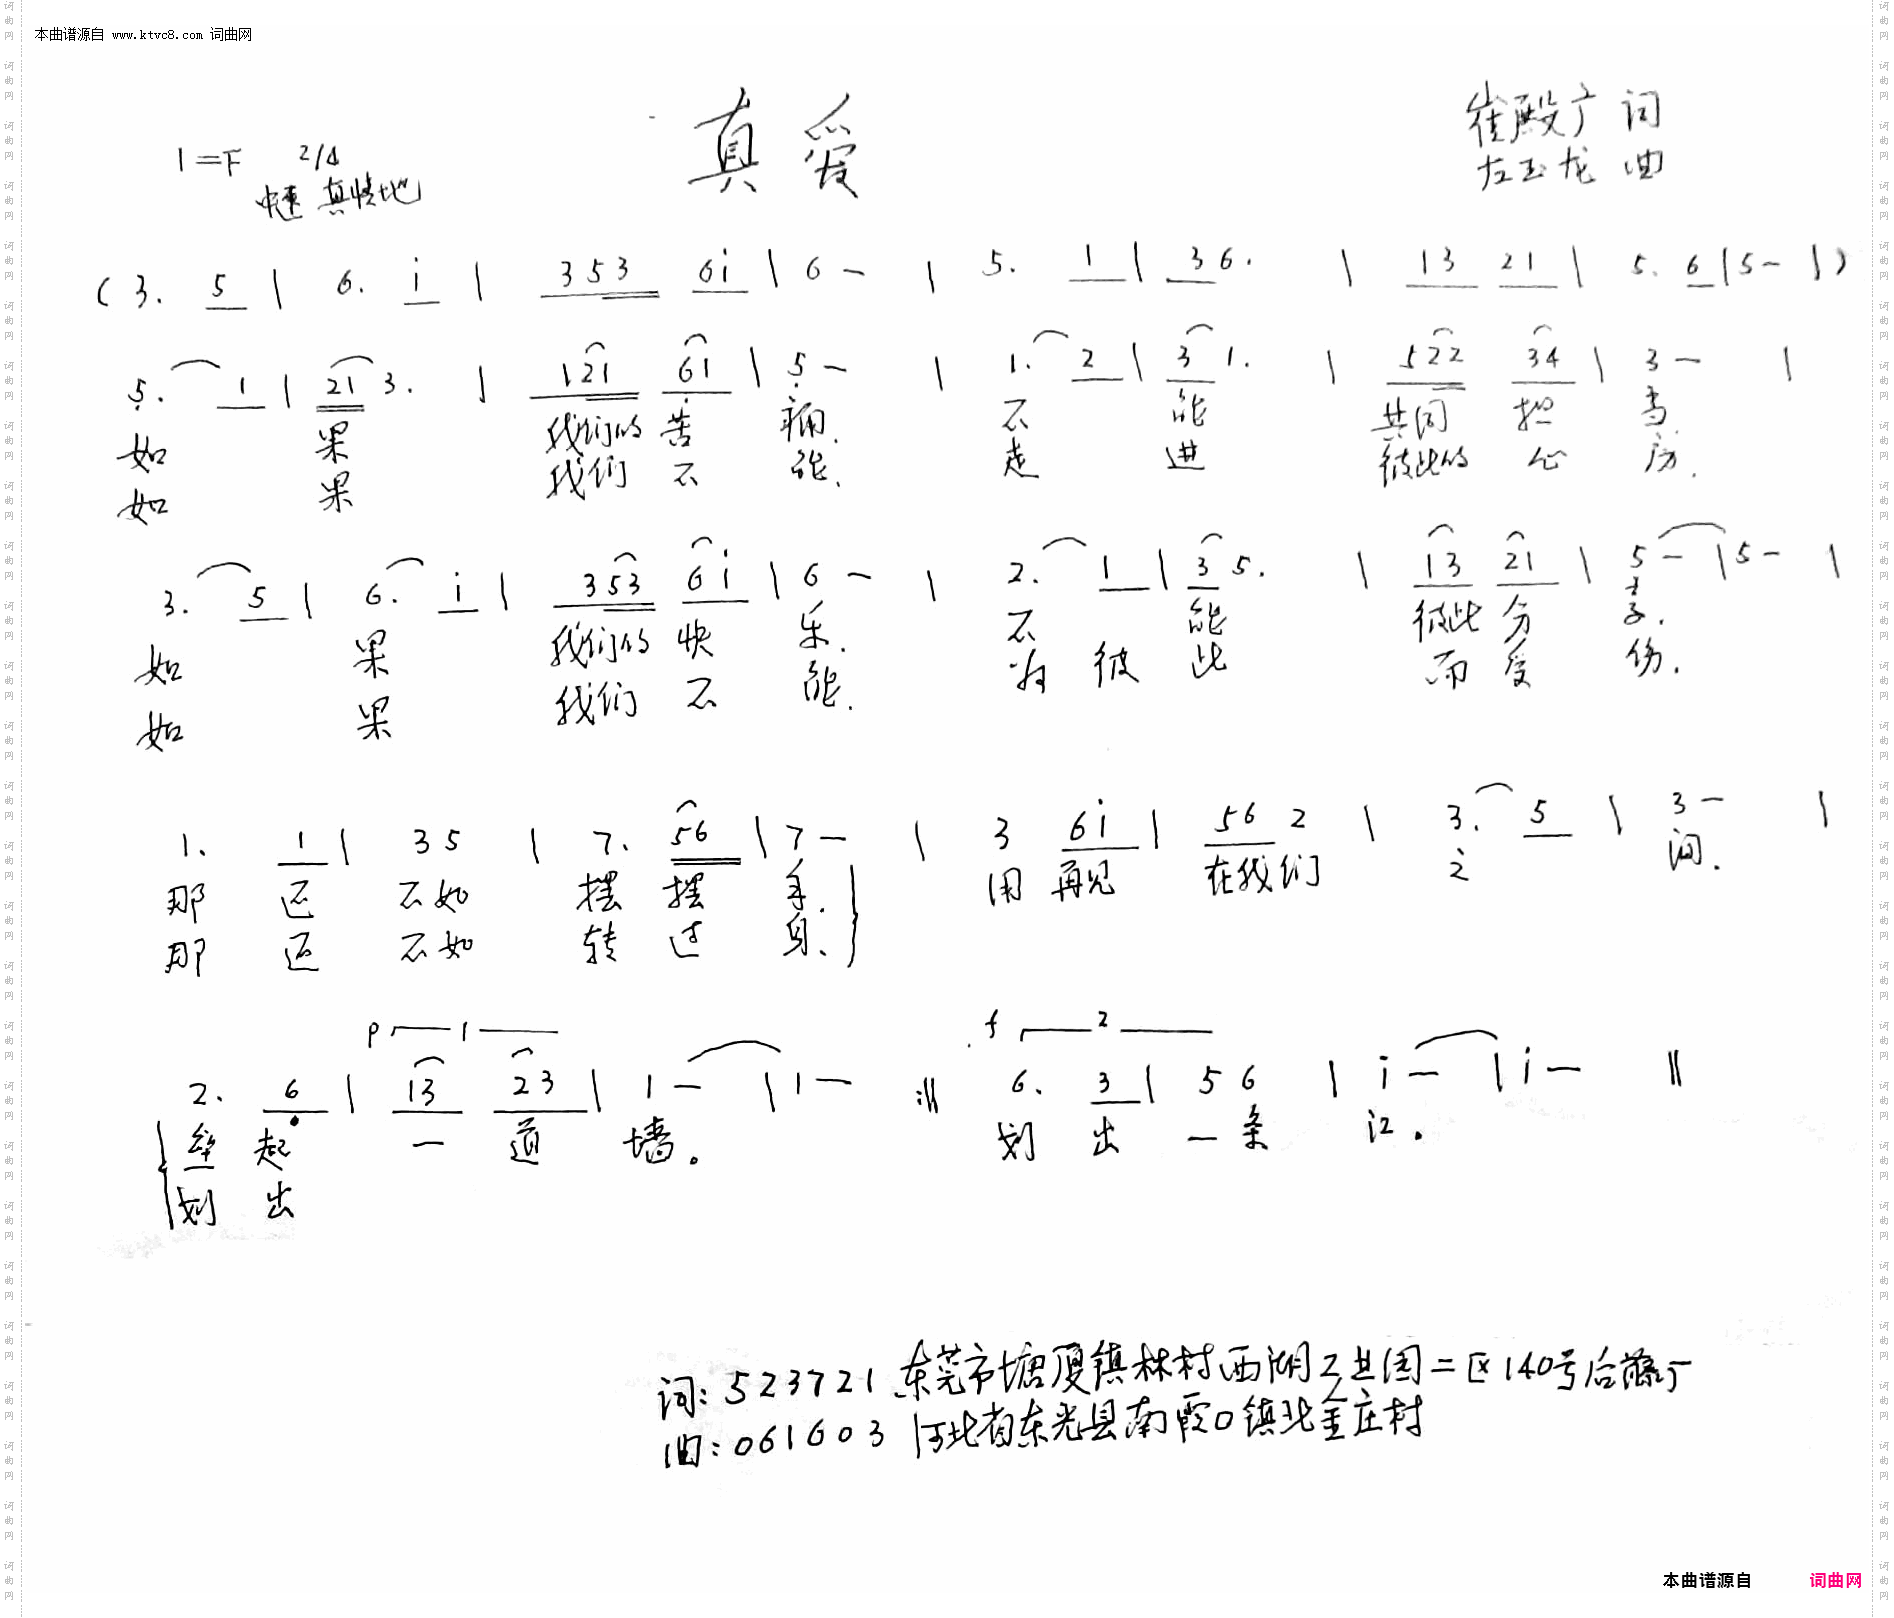 本曲谱源自 www.ktvc8.com 词曲网
真爱
崔殿广 词
左玉龙 曲
1=F 2/4
中速 真情地
(3. 5 | 6. i | 353 6i | 6 — | 5. 1 | 36. | 13 21 | 5. 6 | 5 — |)
5. 1 | 21 3. | 121 61 | 5 — | 1. 2 | 3 1. | 522 34 | 3 — |
如 果 我们的 苦 痛. 不 能 共同 担 当.
如 果 我们 不 能. 走 进 彼此的 心 房.
3. 5 | 6. i | 353 6i | 6 — | 2. 1 | 3 5. | 13 21 | 5 — | 5 — |
如 果 我们的 快 乐. 不 能 彼此 分 享.
如 果 我们 不 能. 为 彼 此 而 受 伤.
1. 1 | 3 5 | 7. 56 | 7 — | 3 6i | 56 2 | 3. 5 | 3 — |
那 还 不如 摆 摆 手. 用 再见 在我们 之 间.
那 还 不如 转 过 身.
p 1 f 2
2. 6 | 13 23 | 1 — | 1 — :‖ 6. 3 | 5 6 | i — | i — ‖
垒 起 一 道 墙。 划 出 一 条 江。
划 出
词: 523721 东莞市塘厦镇林村西湖工业园二区140号后藤厂
曲: 061603 河北省东光县南霞口镇北金庄村
本曲谱源自 词曲网